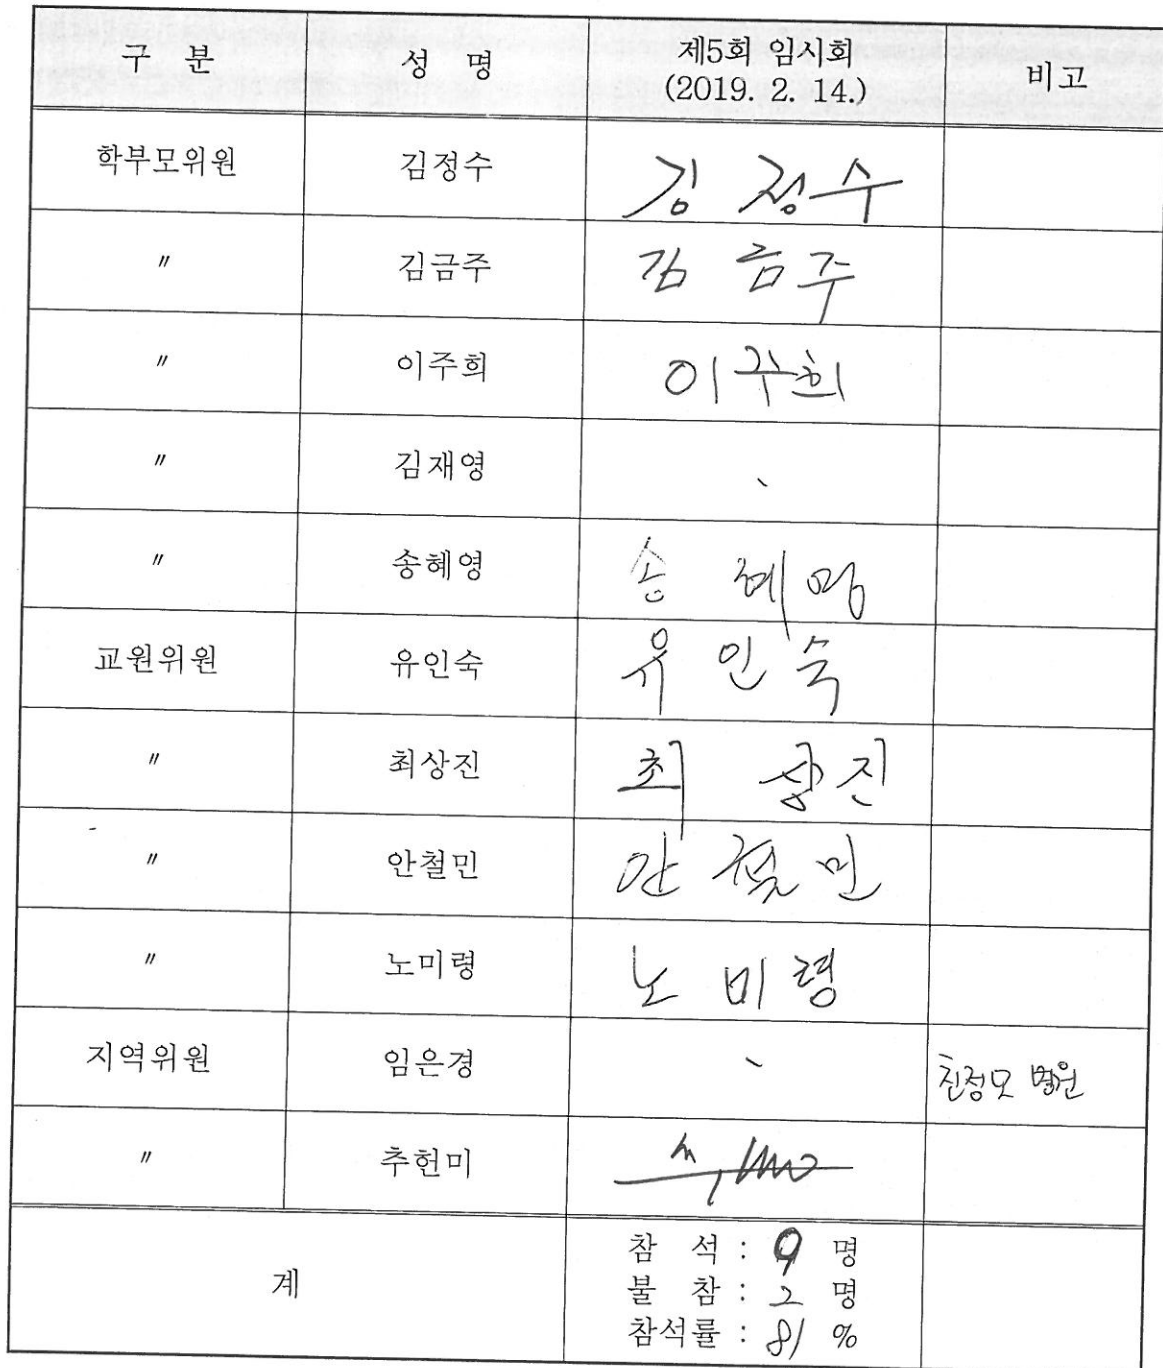 구 분 성 명 제5회 임시회 비고
(2019. 2. 14.)
학부모위원 김정수 김 정수
〃 김금주 김 금주
〃 이주희 이주희
〃 김재영
〃 송혜영 송 혜영
교원위원 유인숙 유 인 숙
〃 최상진 최 상진
〃 안철민 안 철 민
〃 노미령 노 미 령
지역위원 임은경 친정모 병원
〃 추헌미
계
참 석 : 9 명
불 참 : 2 명
참석률 : 81 %